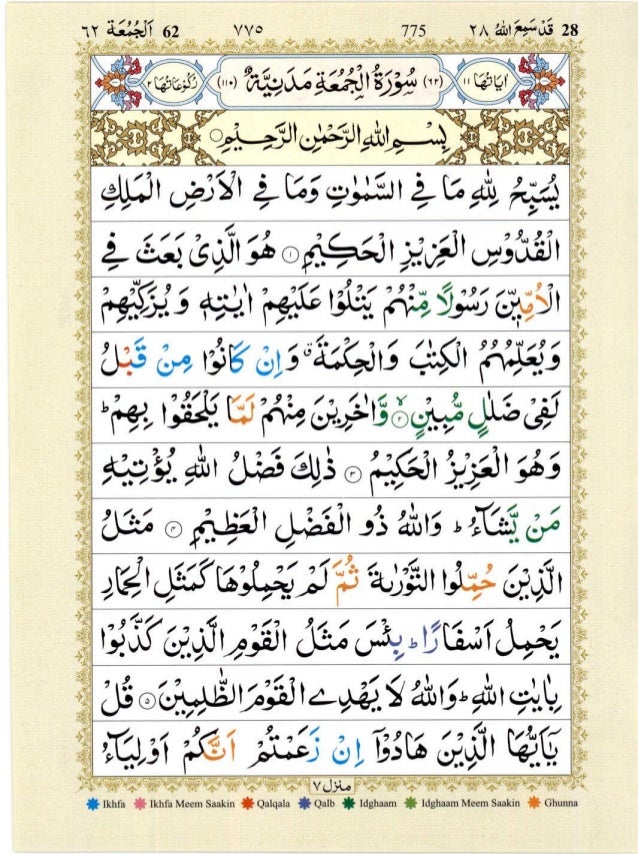 ٦٢ اَلْجُمُعَة 62 ٧٧٥ 775 قَدْ سَمِعَ اللهُ ٢٨ 28
اٰيَاتُهَا ١١ (٦٢) سُوْرَةُ الْجُمُعَةِ مَدَنِيَّةٌ (١١٠) رُكُوْعَاتُهَا ٢
بِسْمِ اللهِ الرَّحْمٰنِ الرَّحِيْمِ
يُسَبِّحُ لِلّٰهِ مَا فِي السَّمٰوٰتِ وَمَا فِي الْاَرْضِ الْمَلِكِ
الْقُدُّوْسِ الْعَزِيْزِ الْحَكِيْمِ ۝١ هُوَ الَّذِيْ بَعَثَ فِي
الْاُمِّيّٖنَ رَسُوْلًا مِّنْهُمْ يَتْلُوْا عَلَيْهِمْ اٰيٰتِهٖ وَيُزَكِّيْهِمْ
وَيُعَلِّمُهُمُ الْكِتٰبَ وَالْحِكْمَةَ ۗ وَاِنْ كَانُوْا مِنْ قَبْلُ
لَفِيْ ضَلٰلٍ مُّبِيْنٍ ۝٢ وَّاٰخَرِيْنَ مِنْهُمْ لَمَّا يَلْحَقُوْا بِهِمْ ؕ
وَهُوَ الْعَزِيْزُ الْحَكِيْمُ ۝٣ ذٰلِكَ فَضْلُ اللهِ يُؤْتِيْهِ
مَنْ يَّشَآءُ ؕ وَاللهُ ذُو الْفَضْلِ الْعَظِيْمِ ۝٤ مَثَلُ
الَّذِيْنَ حُمِّلُوا التَّوْرٰىةَ ثُمَّ لَمْ يَحْمِلُوْهَا كَمَثَلِ الْحِمَارِ
يَحْمِلُ اَسْفَارًا ؕ بِئْسَ مَثَلُ الْقَوْمِ الَّذِيْنَ كَذَّبُوْا
بِاٰيٰتِ اللهِ ؕ وَاللهُ لَا يَهْدِي الْقَوْمَ الظّٰلِمِيْنَ ۝٥ قُلْ
يٰٓاَيُّهَا الَّذِيْنَ هَادُوْٓا اِنْ زَعَمْتُمْ اَنَّكُمْ اَوْلِيَآءُ
منزل ٧
Ikhfa Ikhfa Meem Saakin Qalqala Qalb Idghaam Idghaam Meem Saakin Ghunna